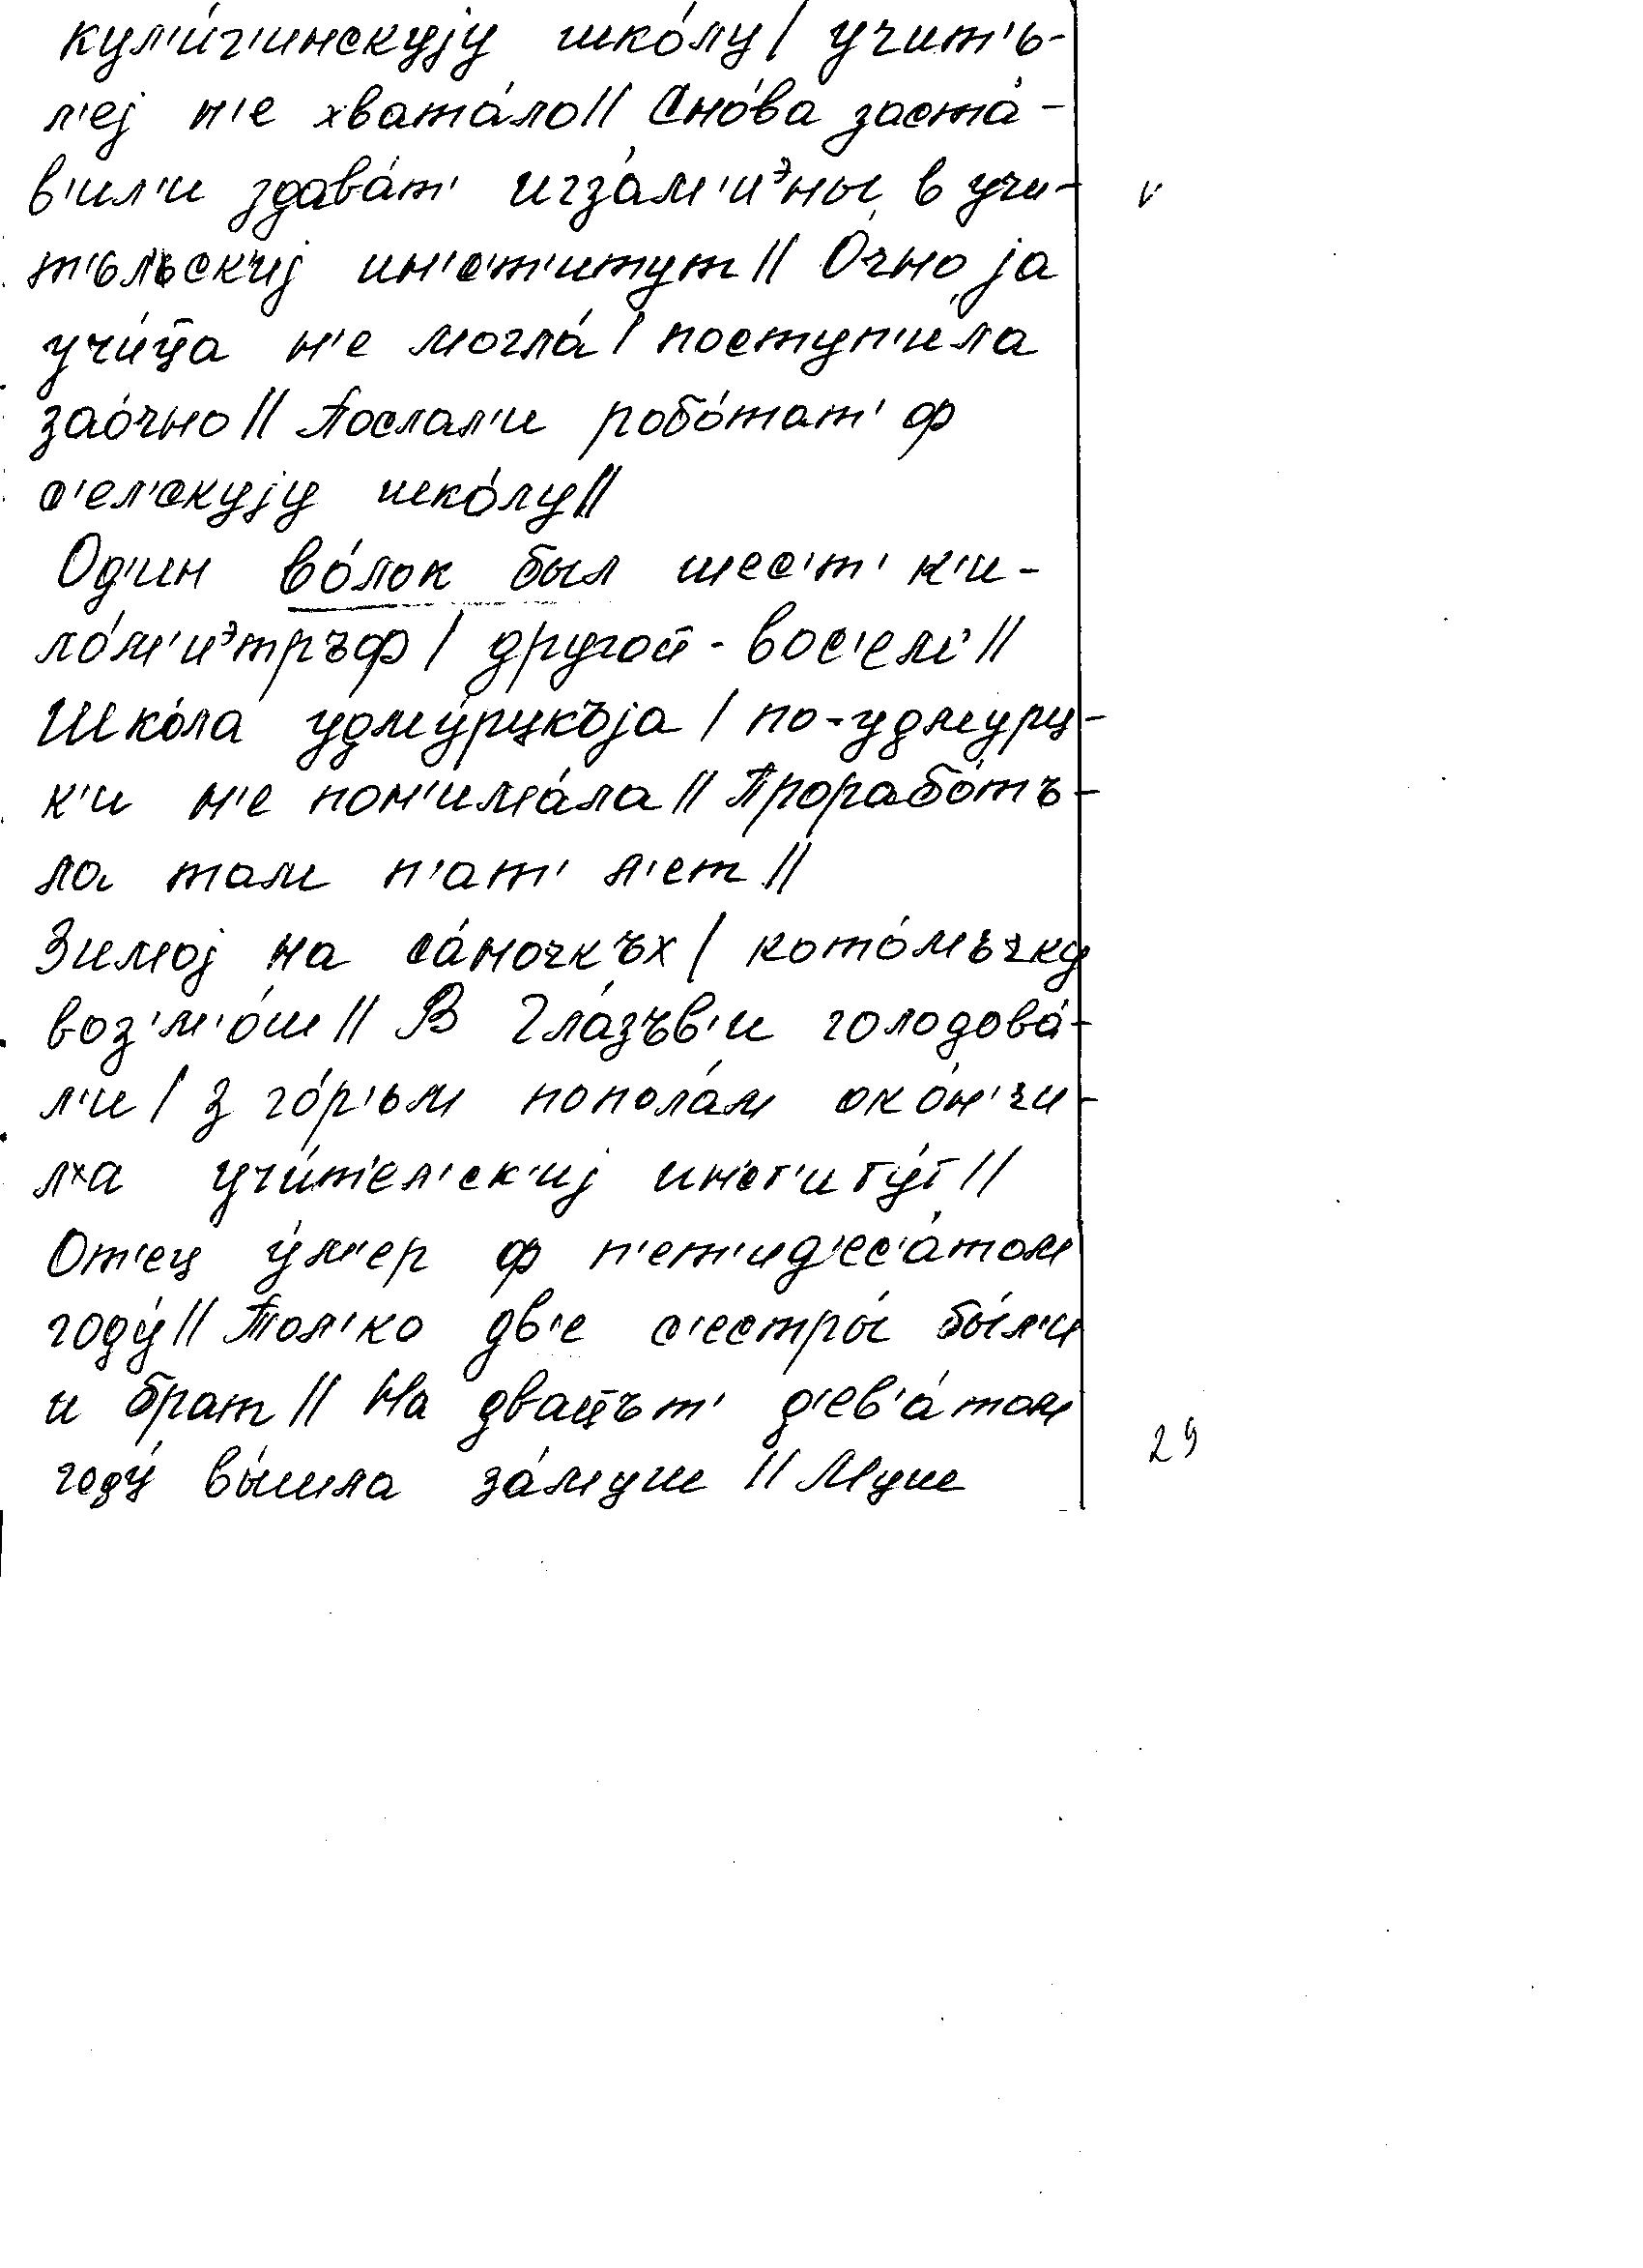 кул'и́г'инскуjу шко́лу / учит'ь-
л'еj н'е хвата́ло // Сно́ва заста́-
в'ил'и здава́т' игза́м'иᵊны в учи-
т'ьл'ьск'иj ин'с'т'итут // О́чно jа
учи́ц̄а н'е могла́ / поступ'и́ла
зао́чно // Послал'и робо́тат' ф
с'ел'скуjу шко́лу //
Од'ин во́лок был шес'т' к'и-
ло́м'иᵊтръф / другой - вос'ем' //
Шко́ла удму́рцкъjа / по-удмурц-
к'и н'е пон'има́ла // Прорабо́тъ-
ла там п'ат' л'ет //
Зимоj на са́ночкъх / кото́мъчку
воз'м'о́ш // В Гла́зъв'и голодова́-
л'и / з го́р'ьм попола́м око́н'чи-
ла учи́т'ел'ск'иj инст'иту́т //
От'ец у́м'ер ф п'ет'ид'ес'а́том
году́ // Тол'ко дв'е с'естры́ бы́л'и
и брат // На двац̄ът' д'ев'а́том
году́ вы́шла за́муш // Муш
v
29